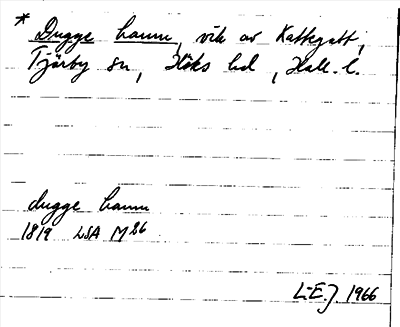 * Dugge hamn, vik av Kattegatt,
Tjärby sn, Höks hd, Hall. l.
dugge hamn
1819 LSA M86
L-E.J. 1966